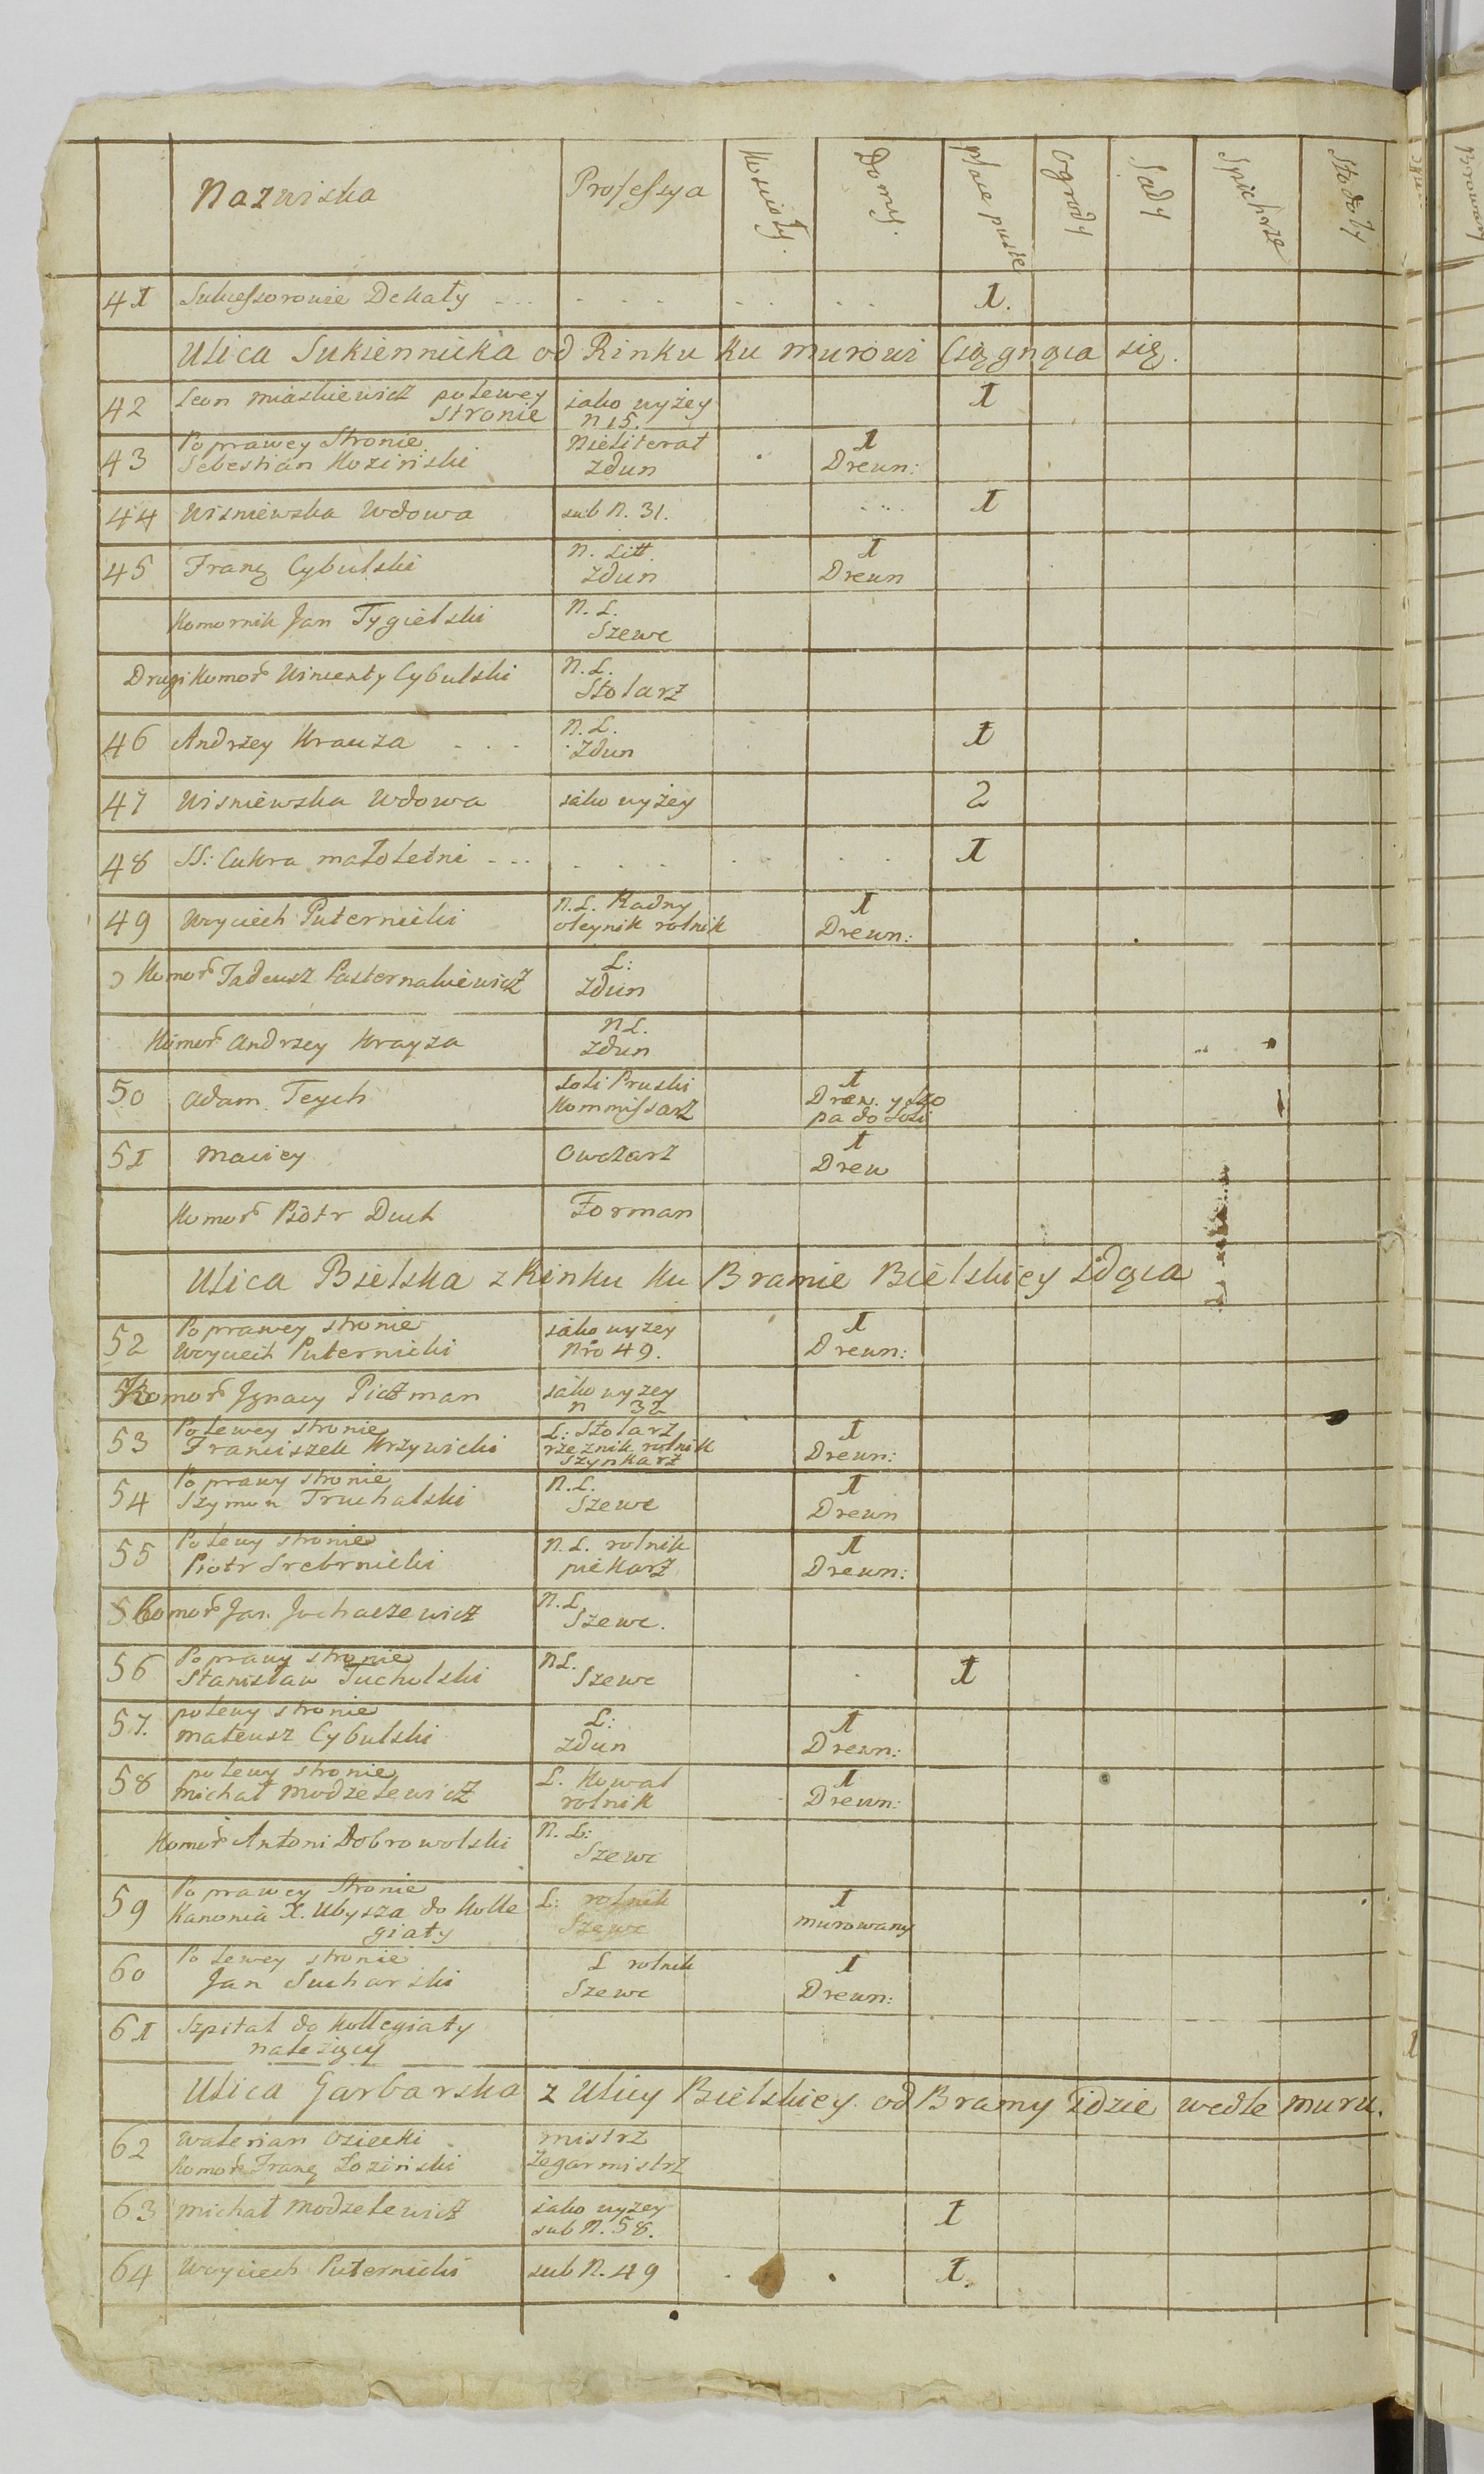 Nazwiska Professya Kościoły. Domy. place puste Ogrody Sady Spichrze Stodoły
41 Sukcessorowie Dekały - - - . . . . . . . 1.
Ulica Sukiennicka od Rinku ku murowi Ciągnąca się.
42 Leon Miaskiewicz po lewey stronie jako wyżey N 15. 1
43 Po prawey Stronie Sebestian Koziński Nieliterat Zdun 1 Drewn:
44 Wisniewska Wdowa sub N. 31. 1
45 Franc Cybulski N. Litt Zdun 1 Drewn
Komornik Jan Tygielski N. L. Szewc
Drugi Komor Wincenty Cybulski N. L. Stolarz
46 Andrzey Krauza - - - N. L. Zdun 1
47 Wisniewska Wdowa jako wyżey 2
48 SS: Cukra małoletni - - - . . . . . . 1
49 Woyciech Puternicki N. L. Radny oleynik rolnik 1 Drewn:
Komor Tadeusz Pasternakiewicz L: Zdun
Komor Andrzey Krayza N L. Zdun
50 Adam Teych Soli Pruski Kommissarz 1 Drew. y Szo pa do Soli
51 Maciey Owczarz 1 Drew
Komor Piotr Duch Forman
Ulica Bielska z Rinku ku Bramie Bielskiey idąca
52 Po prawey stronie Woyciech Puternicki jako wyzey Nro 49. 1 Drewn:
Komor Jgnacy Piczman jako wyzey n 32
53 Po lewey stronie Franciszek Krzywicki L: Stolarz rzeznik rolnik szynkarz 1 Drewn:
54 Po prawy stronie Szymon Truchalski N. L. Szewc 1 Drewn
55 Po lewy stronie Piotr Srebrnicki N. L. rolnik piekarz 1 Drewn:
Komor Jan Juchaczewicz N. L. Szewc.
56 Po prawy stronie Stanisław Tucholski N L. Szewc 1
57. po lewy stronie Mateusz Cybulski L: Zdun 1 Drewn:
58 po lewy stronie Michał Modzelewicz L. Kowal rolnik 1 Drewn:
Komor Antoni Dobrowolski N. L: Szewc
59 Po prawey Stronie Kanonia X. Ubysza do Kolle giaty L: rolnik Szewc 1 murowany
60 Po lewey stronie Jan Sucharski L rolnik Szewc 1 Drewn:
61 Szpital do Kollegiaty należący
Ulica Garbarska z Ulicy Bielskiey od Bramy idzie wedle muru.
62 Walerian Osiecki mistrz
Komor Franc Łoziński Zegarmistrz
63 Michał Modzelewicz jako wyzey sub N. 58. 1
64 Woyciech Puternicki sub N. 49 1.
Browary